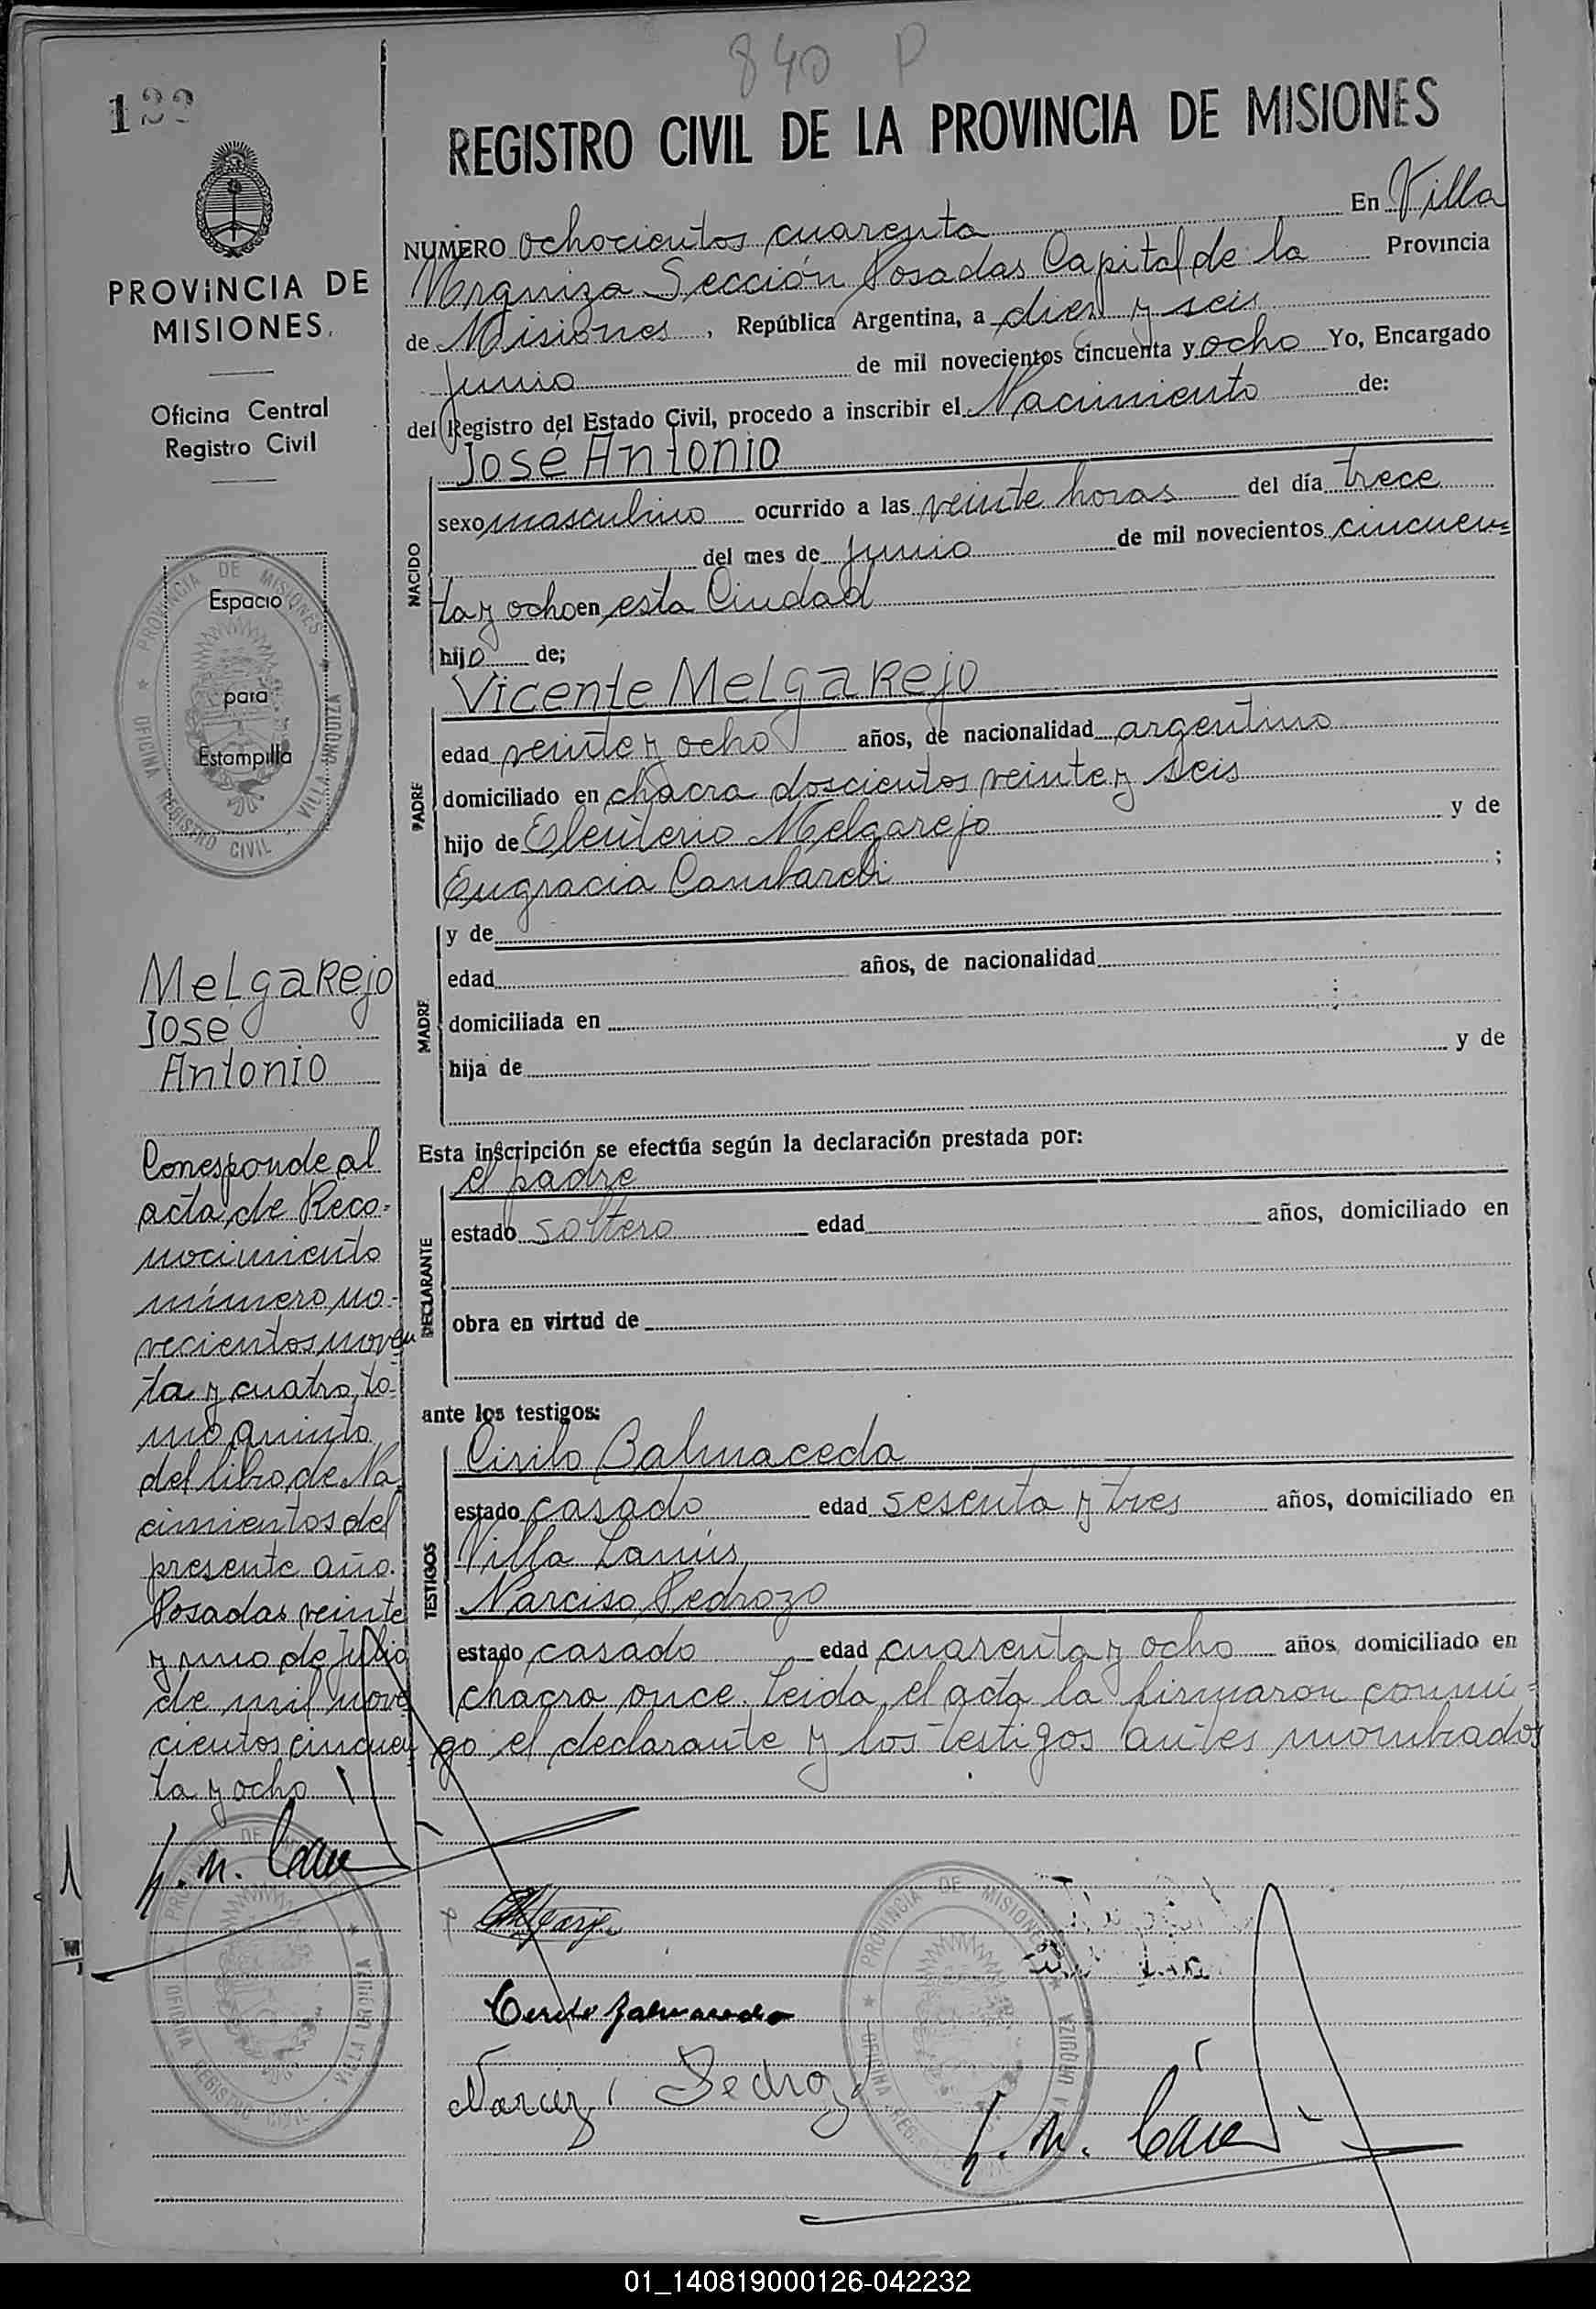 840 P
REGISTRO CIVIL DE LA PROVINCIA DE MISIONES
PROVINCIA DE
MISIONES.
Oficina Central
Registro Civil
NUMERO ochocientos cuarenta En Villa
Urquiza Sección Posadas Capital de la Provincia
de Misiones, República Argentina, a diez y seis
junio de mil novecientos cincuenta y ocho Yo, Encargado
del Registro del Estado Civil, procedo a inscribir el Nacimiento de:
José Antonio
NACIDO
sexo masculino ocurrido a las veinte horas del día trece
del mes de junio de mil novecientos cincuen=
ta y ocho en esta Ciudad
hijo de;
Vicente Melgarejo
PADRE
edad veinte y ocho años, de nacionalidad argentino
domiciliado en chacra doscientos veinte y seis
hijo de Eleuterio Melgarejo y de
Engracia ;
MADRE
y de
edad años, de nacionalidad
domiciliada en
hija de y de
Esta inscripción se efectúa según la declaración prestada por:
el padre
DECLARANTE
estado soltero edad años, domiciliado en
obra en virtud de
ante los testigos:
Cirilo Balmaceda
TESTIGOS
estado casado edad sesenta y tres años, domiciliado en
Villa Lanús
Narciso Pedrozo
estado casado edad cuarenta y ocho años, domiciliado en
chacra once. Leida el acta la firmaron conmi=
go el declarante y los testigos antes nombrados
Espacio
para
Estampilla
PROVINCIA DE MISIONES
OFICINA REGISTRO CIVIL VILLA URQUIZA
Melgarejo
José
Antonio
Corresponde al
acta de Reco=
nocimiento
número no-
vecientos noven
ta y cuatro, to-
mo quinto
del libro de Na
cimientos del
presente año.
Posadas veinte
y uno de Julio
de mil nove
cientos cincuen
ta y ocho
PROVINCIA DE MISIONES
OFICINA REGISTRO CIVIL VILLA URQUIZA
01_140819000126-042232